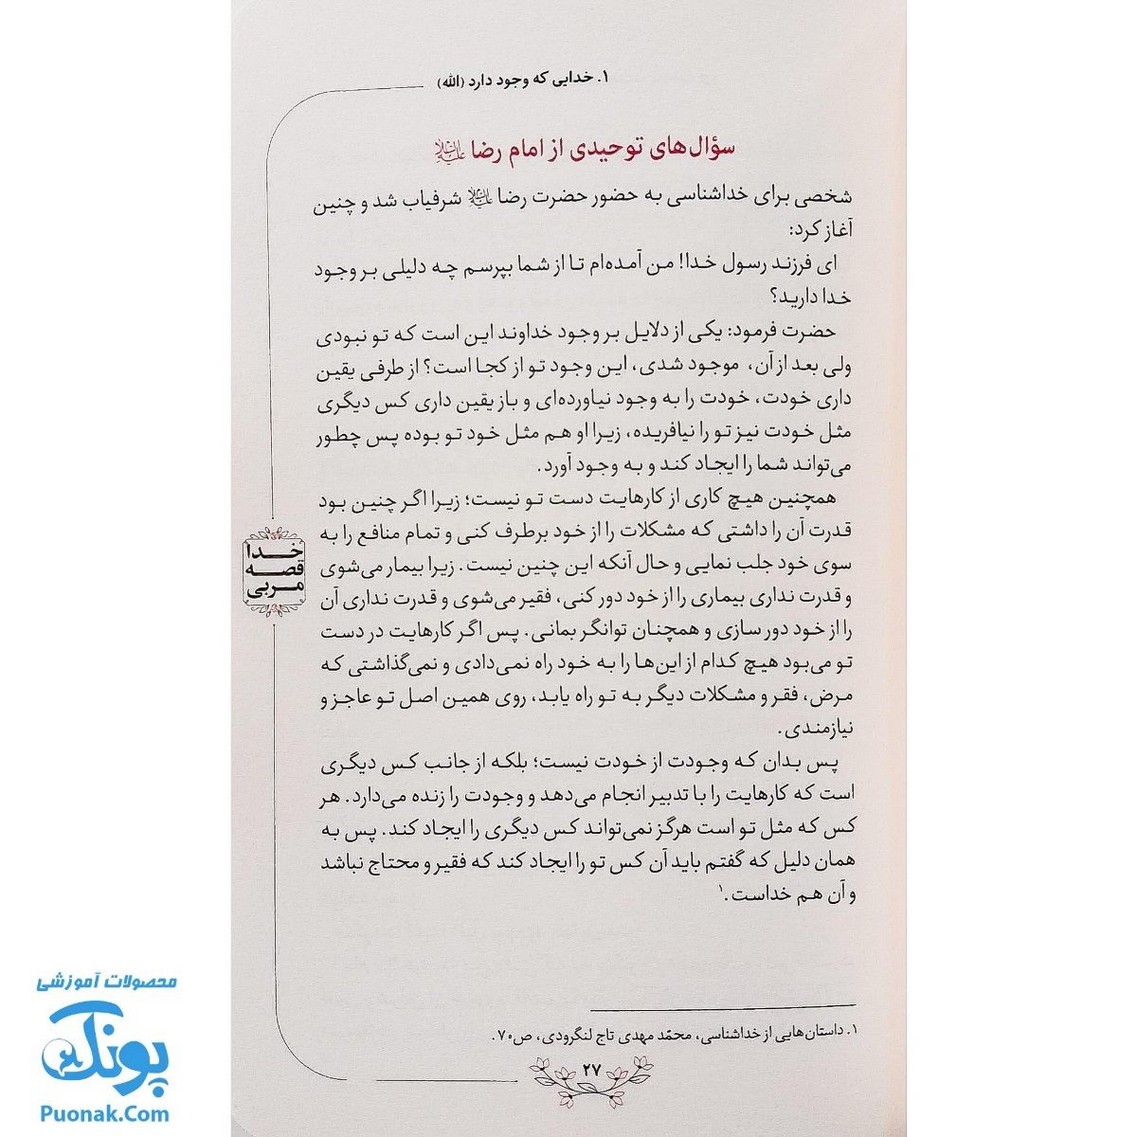 ۱. خدایی که وجود دارد (الله)
سؤال‌های توحیدی از امام رضا علیه‌السلام
شخصی برای خداشناسی به حضور حضرت رضا علیه‌السلام شرفیاب شد و چنین
آغاز کرد:
ای فرزند رسول خدا! من آمده‌ام تا از شما بپرسم چه دلیلی بر وجود
خدا دارید؟
حضرت فرمود: یکی از دلایل بر وجود خداوند این است که تو نبودی
ولی بعد از آن، موجود شدی، این وجود تو از کجا است؟ از طرفی یقین
داری خودت، خودت را به وجود نیاورده‌ای و باز یقین داری کس دیگری
مثل خودت نیز تو را نیافریده، زیرا او هم مثل خود تو بوده پس چطور
می‌تواند شما را ایجاد کند و به وجود آورد.
همچنین هیچ کاری از کارهایت دست تو نیست؛ زیرا اگر چنین بود
قدرت آن را داشتی که مشکلات را از خود برطرف کنی و تمام منافع را به
سوی خود جلب نمایی و حال آنکه این چنین نیست. زیرا بیمار می‌شوی
و قدرت نداری بیماری را از خود دور کنی، فقیر می‌شوی و قدرت نداری آن
را از خود دور سازی و همچنان توانگر بمانی. پس اگر کارهایت در دست
تو می‌بود هیچ کدام از این‌ها را به خود راه نمی‌دادی و نمی‌گذاشتی که
مرض، فقر و مشکلات دیگر به تو راه یابد، روی همین اصل تو عاجز و
نیازمندی.
پس بدان که وجودت از خودت نیست؛ بلکه از جانب کس دیگری
است که کارهایت را با تدبیر انجام می‌دهد و وجودت را زنده می‌دارد. هر
کس که مثل تو است هرگز نمی‌تواند کس دیگری را ایجاد کند. پس به
همان دلیل که گفتم باید آن کس تو را ایجاد کند که فقیر و محتاج نباشد
و آن هم خداست.۱
۱. داستان‌هایی از خداشناسی، محمّد مهدی تاج لنگرودی، ص۷۰.
۲۷
خدا
قصه
مربی
محصولات آموزشی
پونک
Puonak.Com